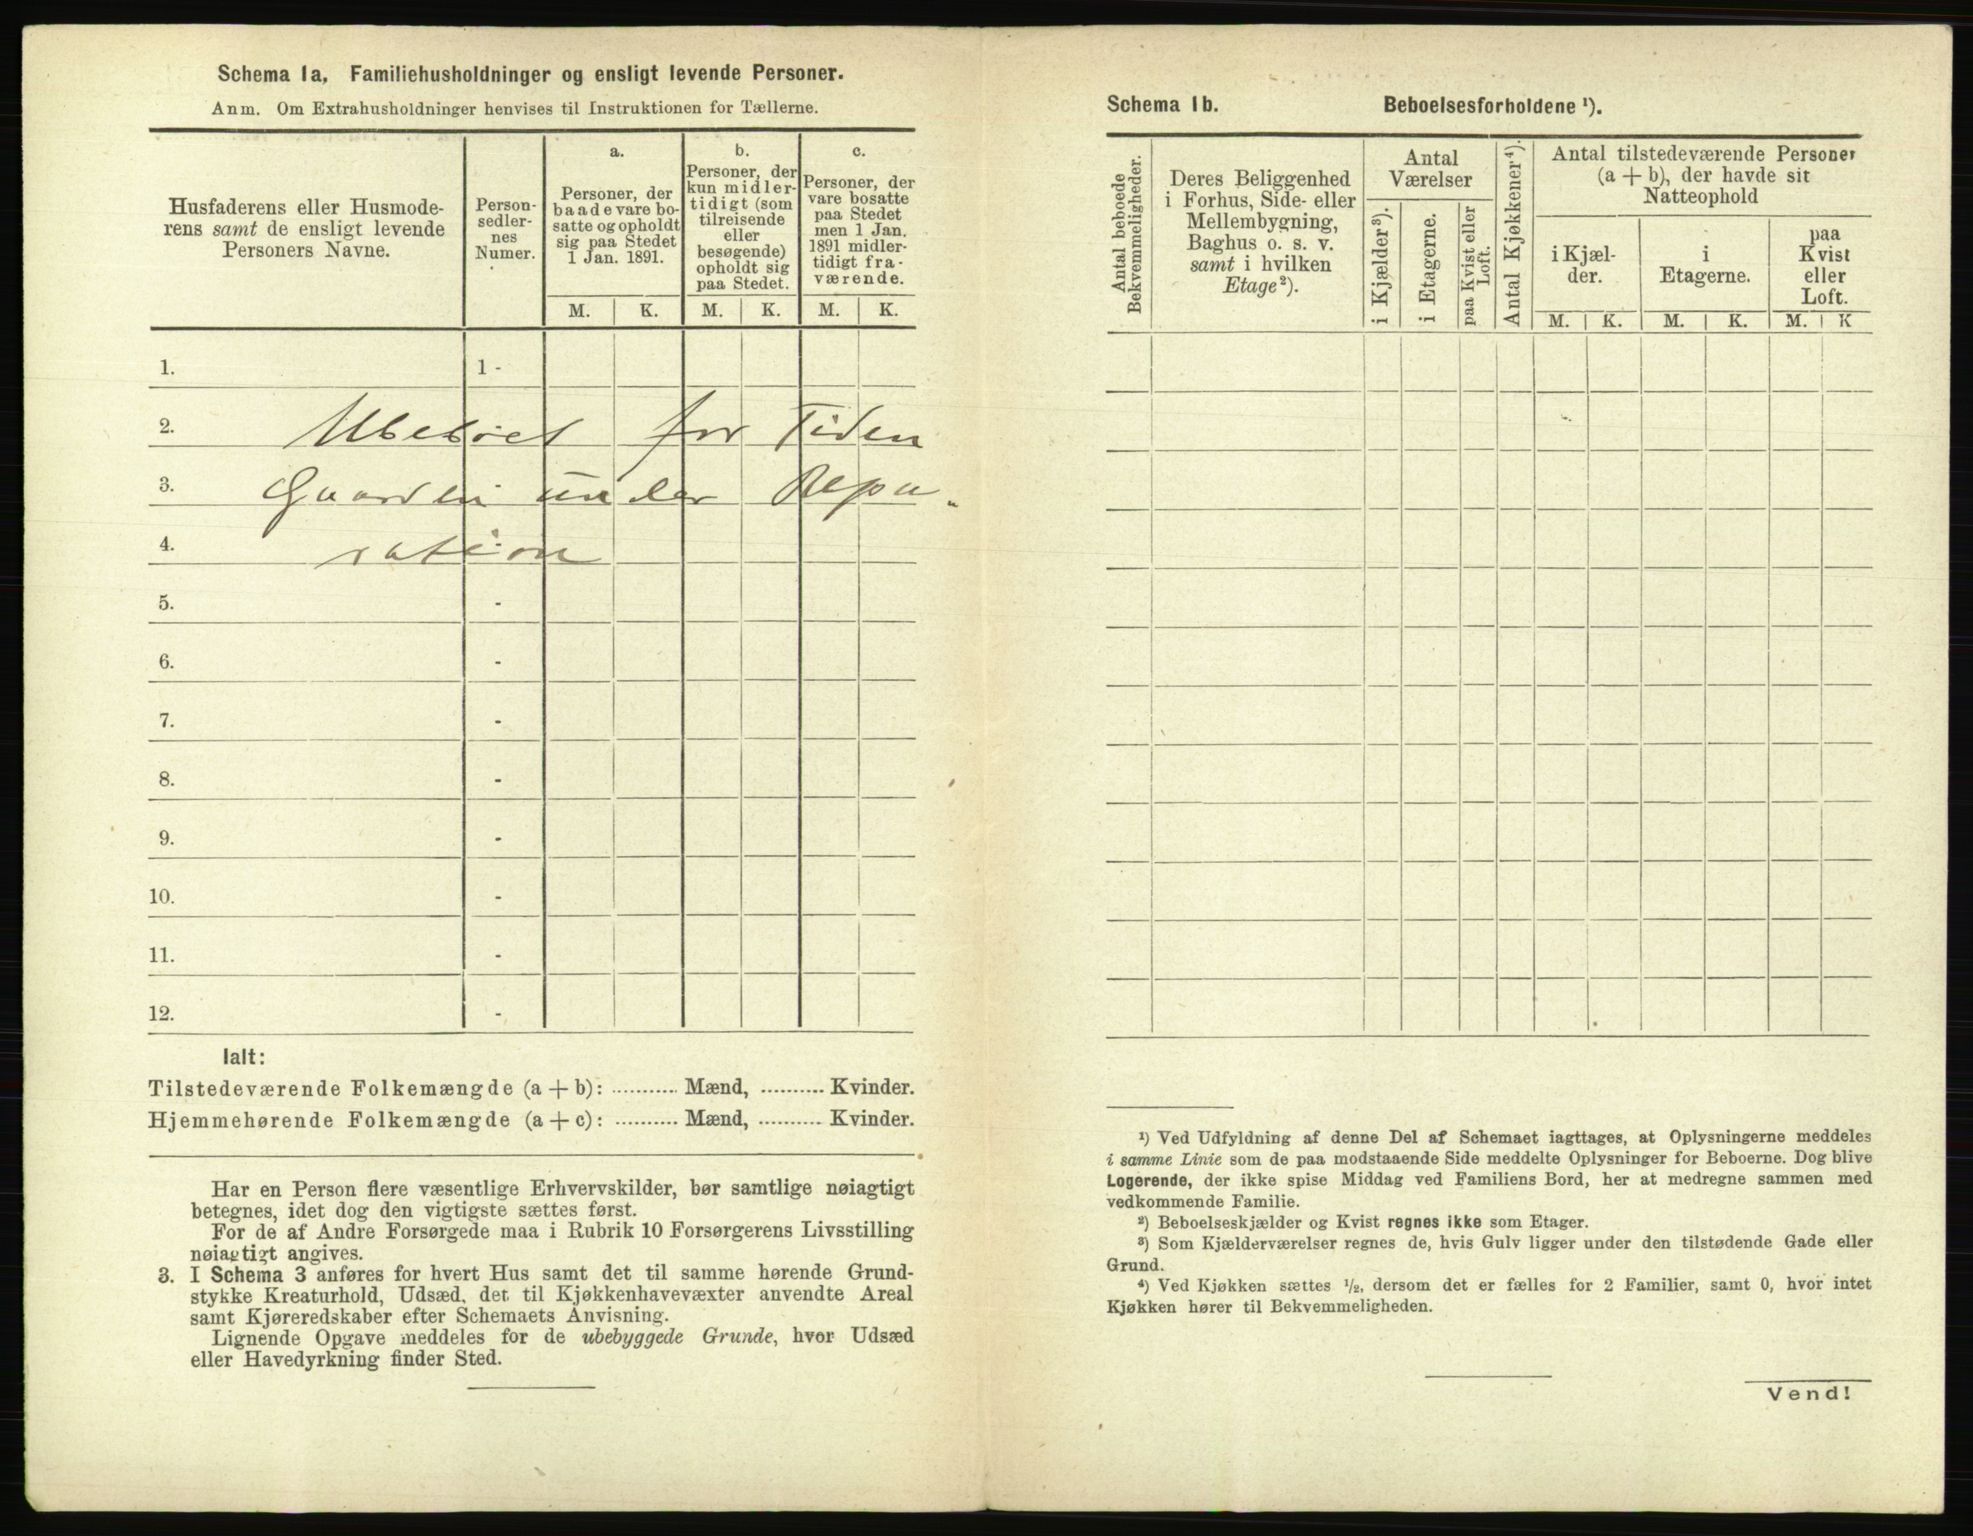 Schema 1a, Familiehusholdninger og ensligt levende Personer.
Anm. Om Extrahusholdninger henvises til Instruktionen for Tællerne.
Husfaderens eller Husmode-
rens samt de ensligt levende
Personers Navne.
Person-
sedler-
nes
Numer.
a.
Personer, der
baade vare bo-
satte og opholdt
sig paa Stedet
1 Jan. 1891.
b.
Personer, der
kun midler-
tidigt (som
tilreisende
eller
besøgende)
opholdt sig
paa Stedet.
c.
Personer, der
vare bosatte
paa Stedet
men 1 Jan.
1891 midler-
tidigt fra-
værende.
M. K. M. K. M. K.
1. 1 -
2. Ubeboet for Tiden
3. Gaarden under Repa-
4. ration
5. -
6. -
7. -
8. -
9. -
10. -
11. -
12. -
Ialt:
Tilstedeværende Folkemængde (a + b): ........... Mænd, .......... Kvinder.
Hjemmehørende Folkemængde (a + c): .......... Mænd, .......... Kvinder.
Har en Person flere væsentlige Erhvervskilder, bør samtlige nøiagtigt
betegnes, idet dog den vigtigste sættes først.
For de af Andre Forsørgede maa i Rubrik 10 Forsørgerens Livsstilling
nøiagtigt angives.
3. I Schema 3 anføres for hvert Hus samt det til samme hørende Grund-
stykke Kreaturhold, Udsæd, det til Kjøkkenhavevæxter anvendte Areal
samt Kjøreredskaber efter Schemaets Anvisning.
Lignende Opgave meddeles for de ubebyggede Grunde, hvor Udsæd
eller Havedyrkning finder Sted.
Schema 1b. Beboelsesforholdene ¹).
Antal beboede
Bekvemmeligheder.
Deres Beliggenhed
i Forhus, Side- eller
Mellembygning,
Baghus o. s. v.
samt i hvilken
Etage²).
Antal
Værelser
i Kjælder³).
i Etagerne.
paa Kvist eller
Loft.
Antal Kjøkkener⁴).
Antal tilstedeværende Personer
(a + b), der havde sit
Natteophold
i Kjæl-
der.
i
Etagerne.
paa
Kvist
eller
Loft.
M. K. M. K. M. K
¹) Ved Udfyldning af denne Del af Schemaet iagttages, at Oplysningerne meddeles
i samme Linie som de paa modstaaende Side meddelte Oplysninger for Beboerne. Dog blive
Logerende, der ikke spise Middag ved Familiens Bord, her at medregne sammen med
vedkommende Familie.
²) Beboelseskjælder og Kvist regnes ikke som Etager.
³) Som Kjælderværelser regnes de, hvis Gulv ligger under den tilstødende Gade eller
Grund.
⁴) Ved Kjøkken sættes ½, dersom det er fælles for 2 Familier, samt 0, hvor intet
Kjøkken hører til Bekvemmeligheden.
Vend!